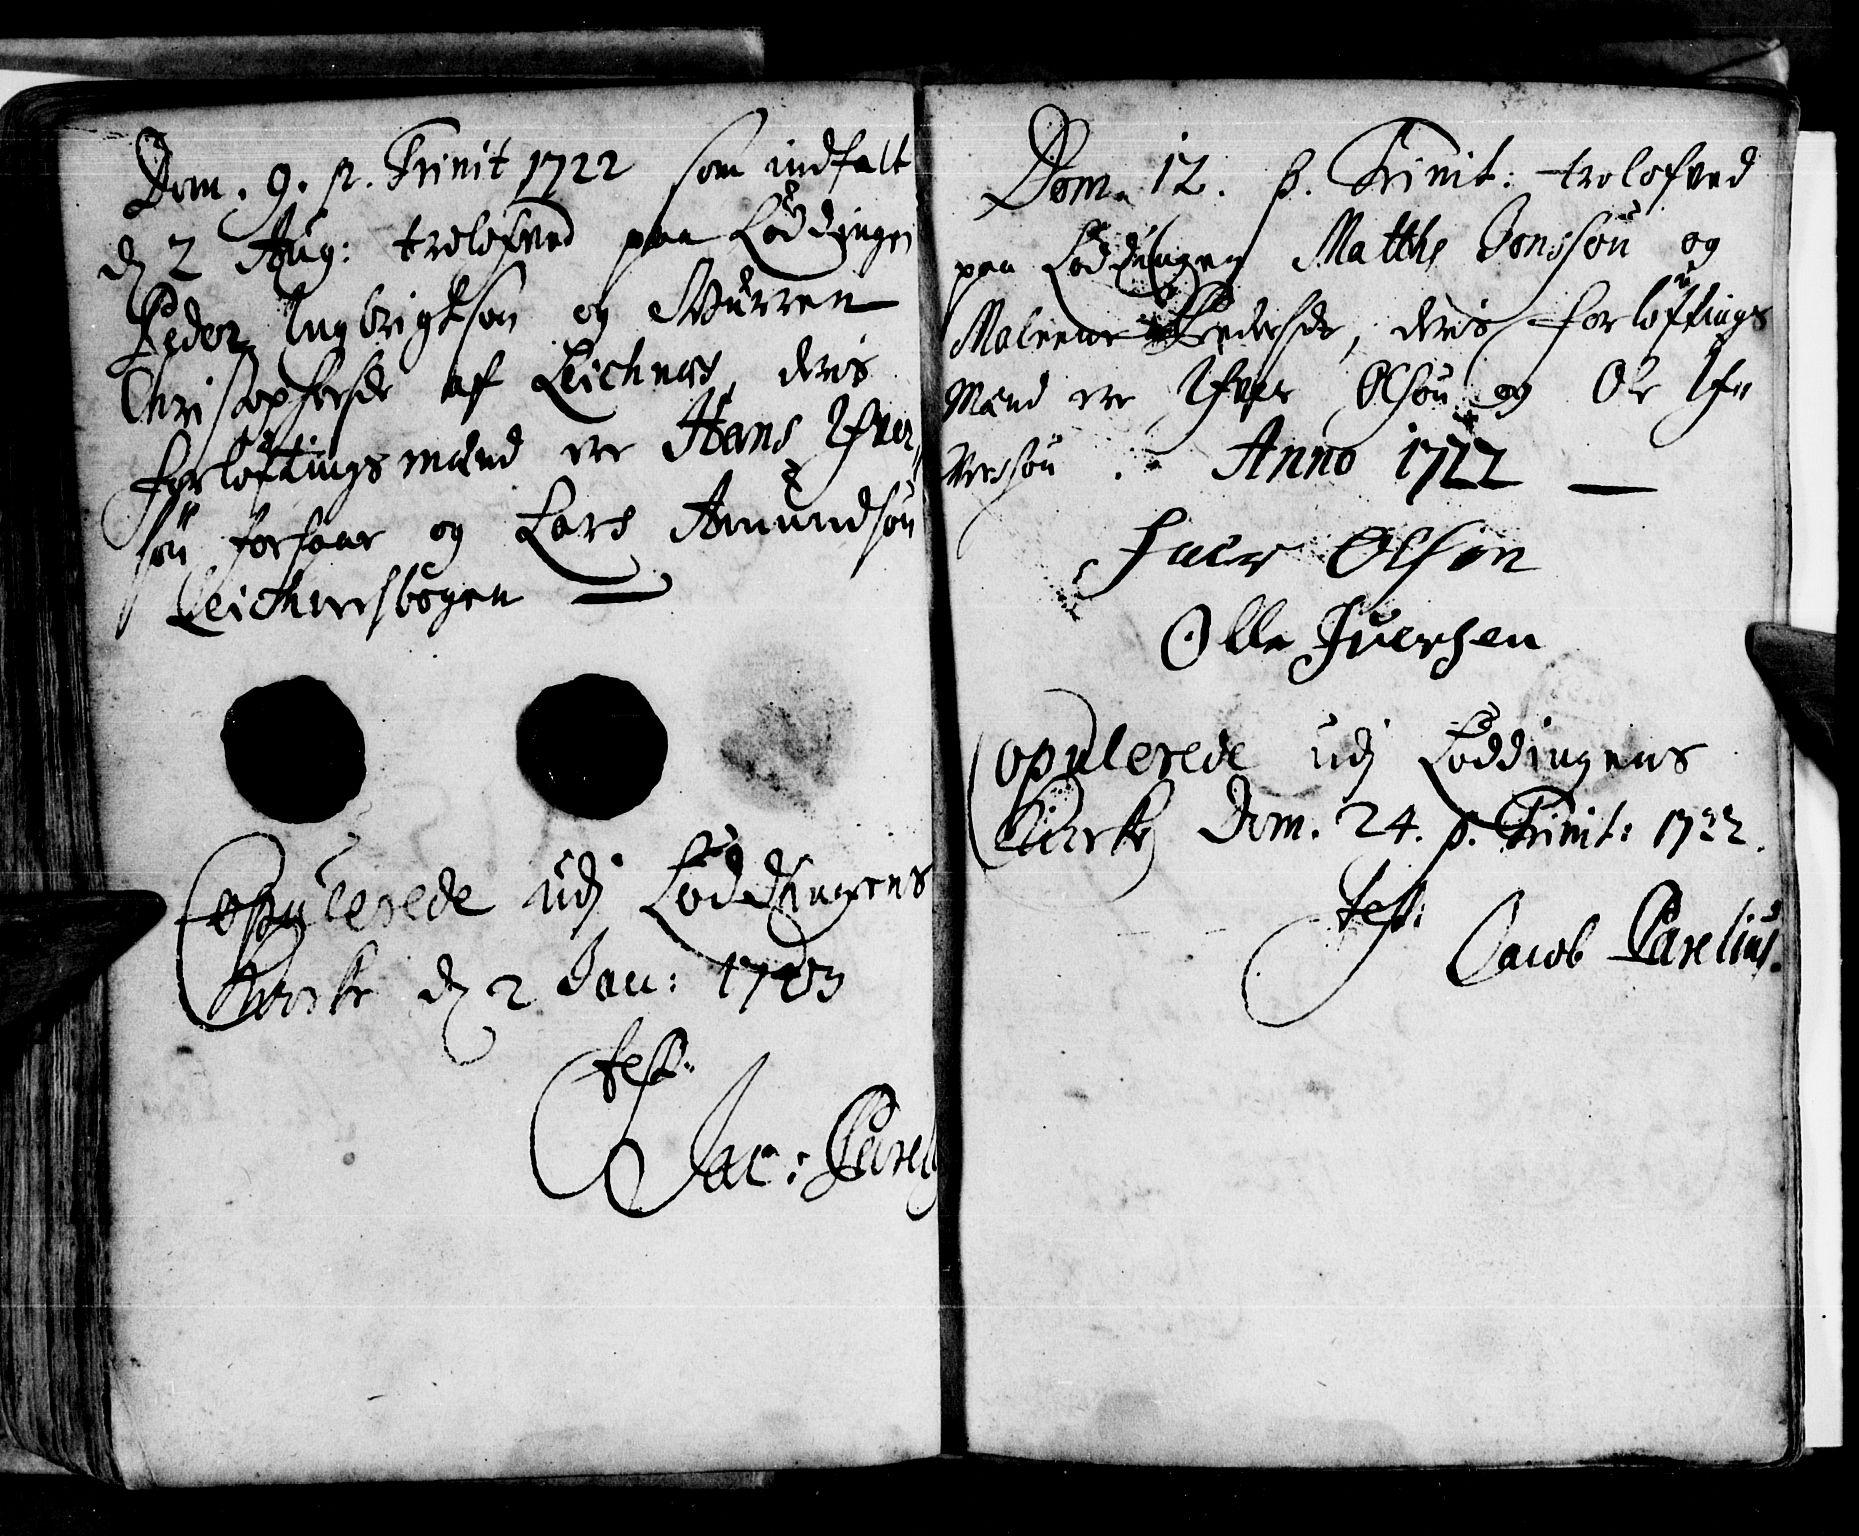 Dom. 9. p. Trinit 1722 som indfalt
d 2 Aug: trolofved paa Löddingen
Peder Ingbrigtsøn og Maren
Christophersd: af Leichnes, deris
forlöftings mænd ere Hans Ifver
sön forsaae og Lars Amundsön
Leichnesbogen —
Copulerede udj Löddingens
Kircke d 2 Jan: 1723
test:
Jac: Parely
Dom. 12. p. Trinit: trolofved
paa Löddingen Matths Jonssön og
Maleene Pedersdr, deris forlöftings
Mænd ere Ifver Olsön og Ole Ifr
versön. Anno 1722 —
Juer Olsøn
Olle Juersen
Copulerede udj Löddingens
Kircke Dom. 24. p. Trinit: 1722.
test:
Jacob Parelius.